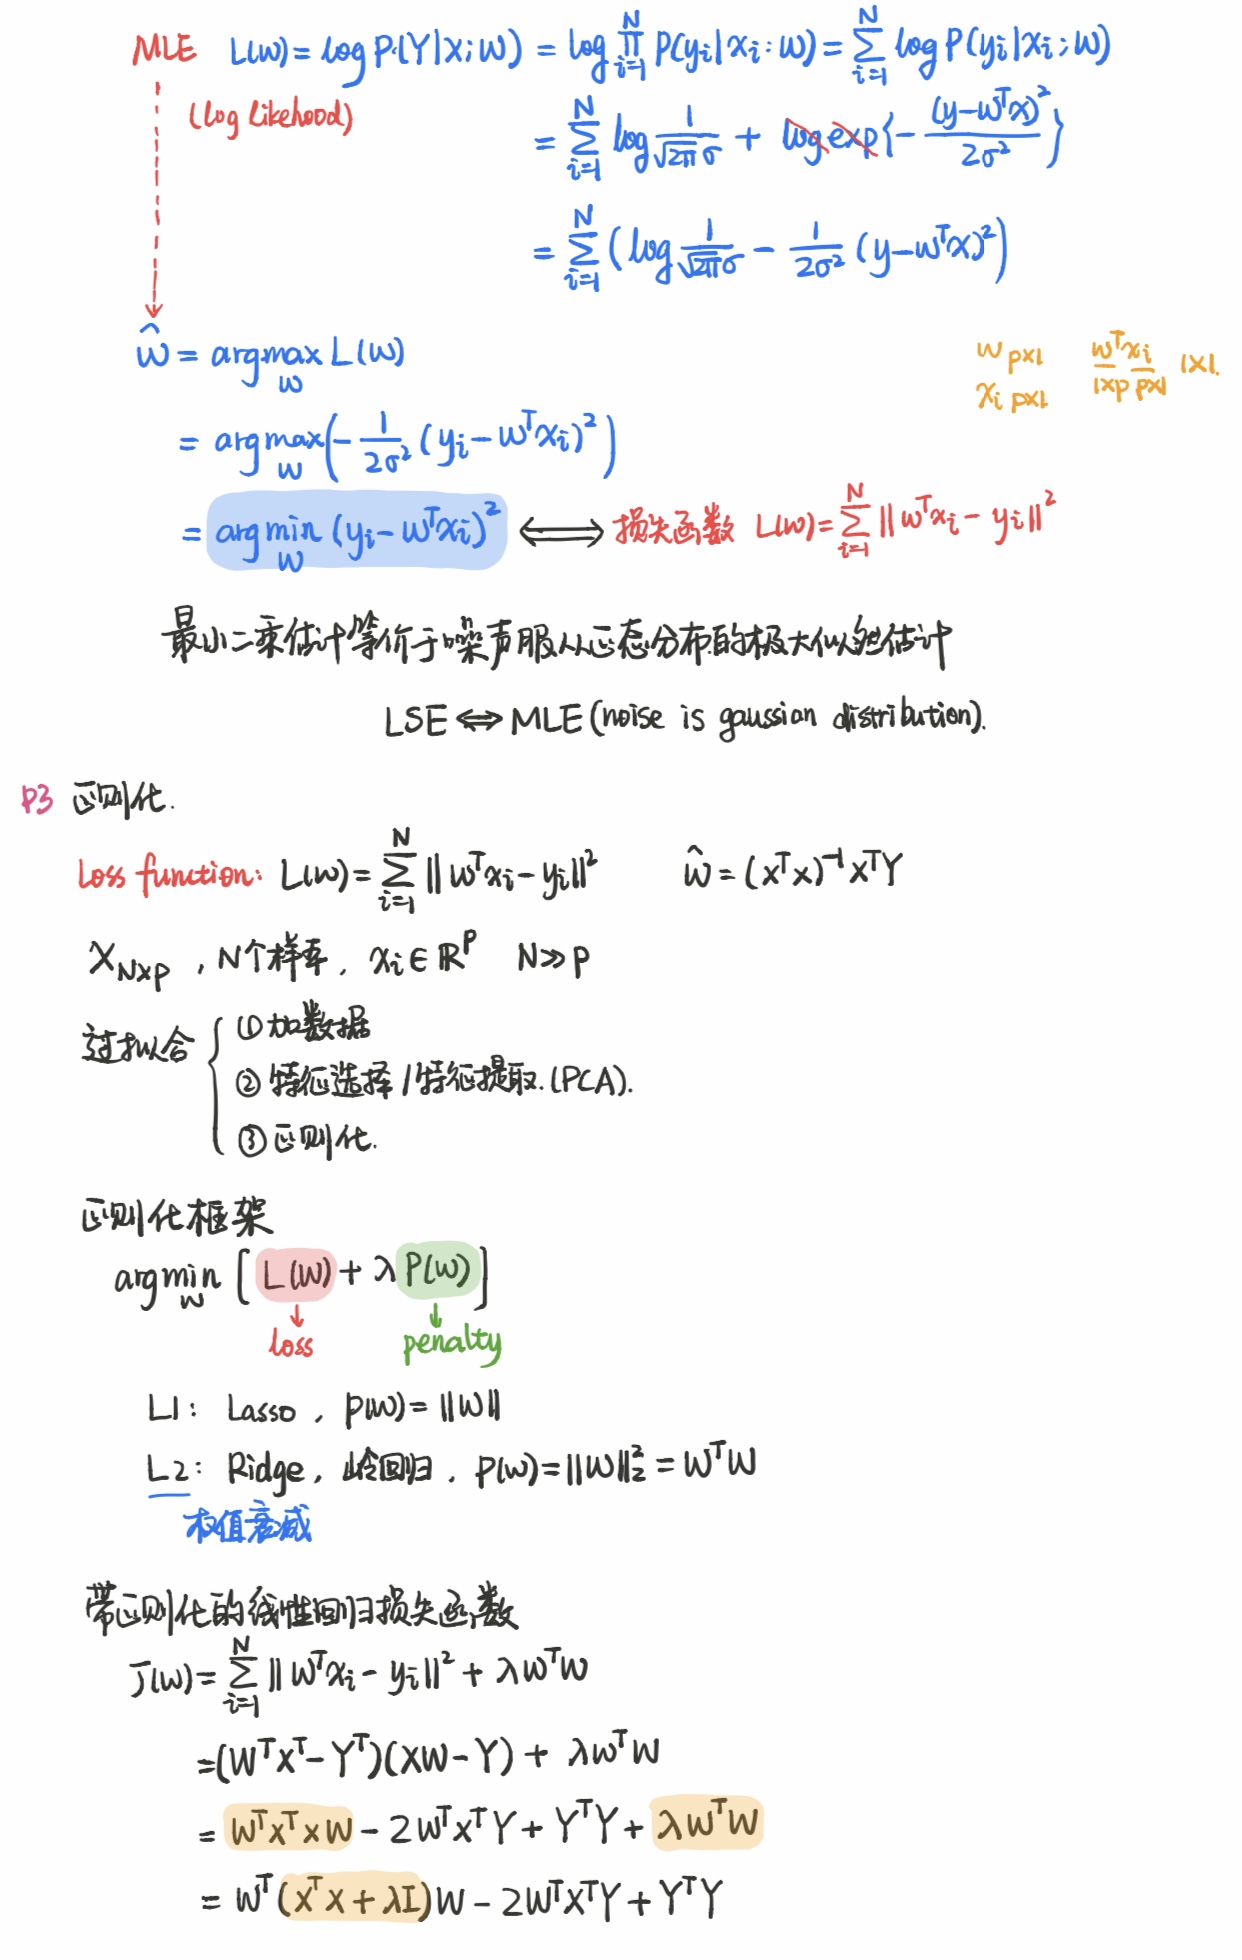 MLE L(w) = log P(Y|X;W) = log ∏_{i=1}^{N} P(y_i|x_i:w) = ∑_{i=1}^{N} log P(y_i|x_i;w)
(log likehood) = ∑_{i=1}^{N} log 1/(√2π σ) + log exp{- (y-w^T x)^2 / 2σ^2}
= ∑_{i=1}^{N} (log 1/(√2π σ) - 1/(2σ^2) (y-w^T x)^2)
ŵ = argmax_w L(w)
w_{p×1} w^T x_i 1×1.
x_{i p×1} 1×p p×1
= argmax_w (- 1/(2σ^2) (y_i - w^T x_i)^2)
= argmin_w (y_i - w^T x_i)^2 ⟺ 损失函数 L(w) = ∑_{i=1}^{N} ||w^T x_i - y_i||^2
最小二乘估计等价于噪声服从正态分布的极大似然估计
LSE ⟺ MLE (noise is gaussian distribution).
P3 正则化.
Loss function: L(w) = ∑_{i=1}^{N} ||w^T x_i - y_i||^2 ŵ = (X^T X)^{-1} X^T Y
X_{N×p}, N个样本, x_i ∈ ℝ^p N≫p
过拟合 { ① 加数据
② 特征选择/特征提取.(PCA).
③ 正则化.
正则化框架
argmin_w [L(w) + λP(w)]
loss penalty
L1: Lasso, P(w) = ||w||
L2: Ridge, 岭回归, P(w) = ||w||_2^2 = w^T w
权值衰减
带正则化的线性回归损失函数
J(w) = ∑_{i=1}^{N} ||w^T x_i - y_i||^2 + λw^T w
= (W^T X^T - Y^T)(XW - Y) + λw^T W
= W^T X^T X W - 2W^T X^T Y + Y^T Y + λW^T W
= W^T (X^T X + λI) W - 2W^T X^T Y + Y^T Y